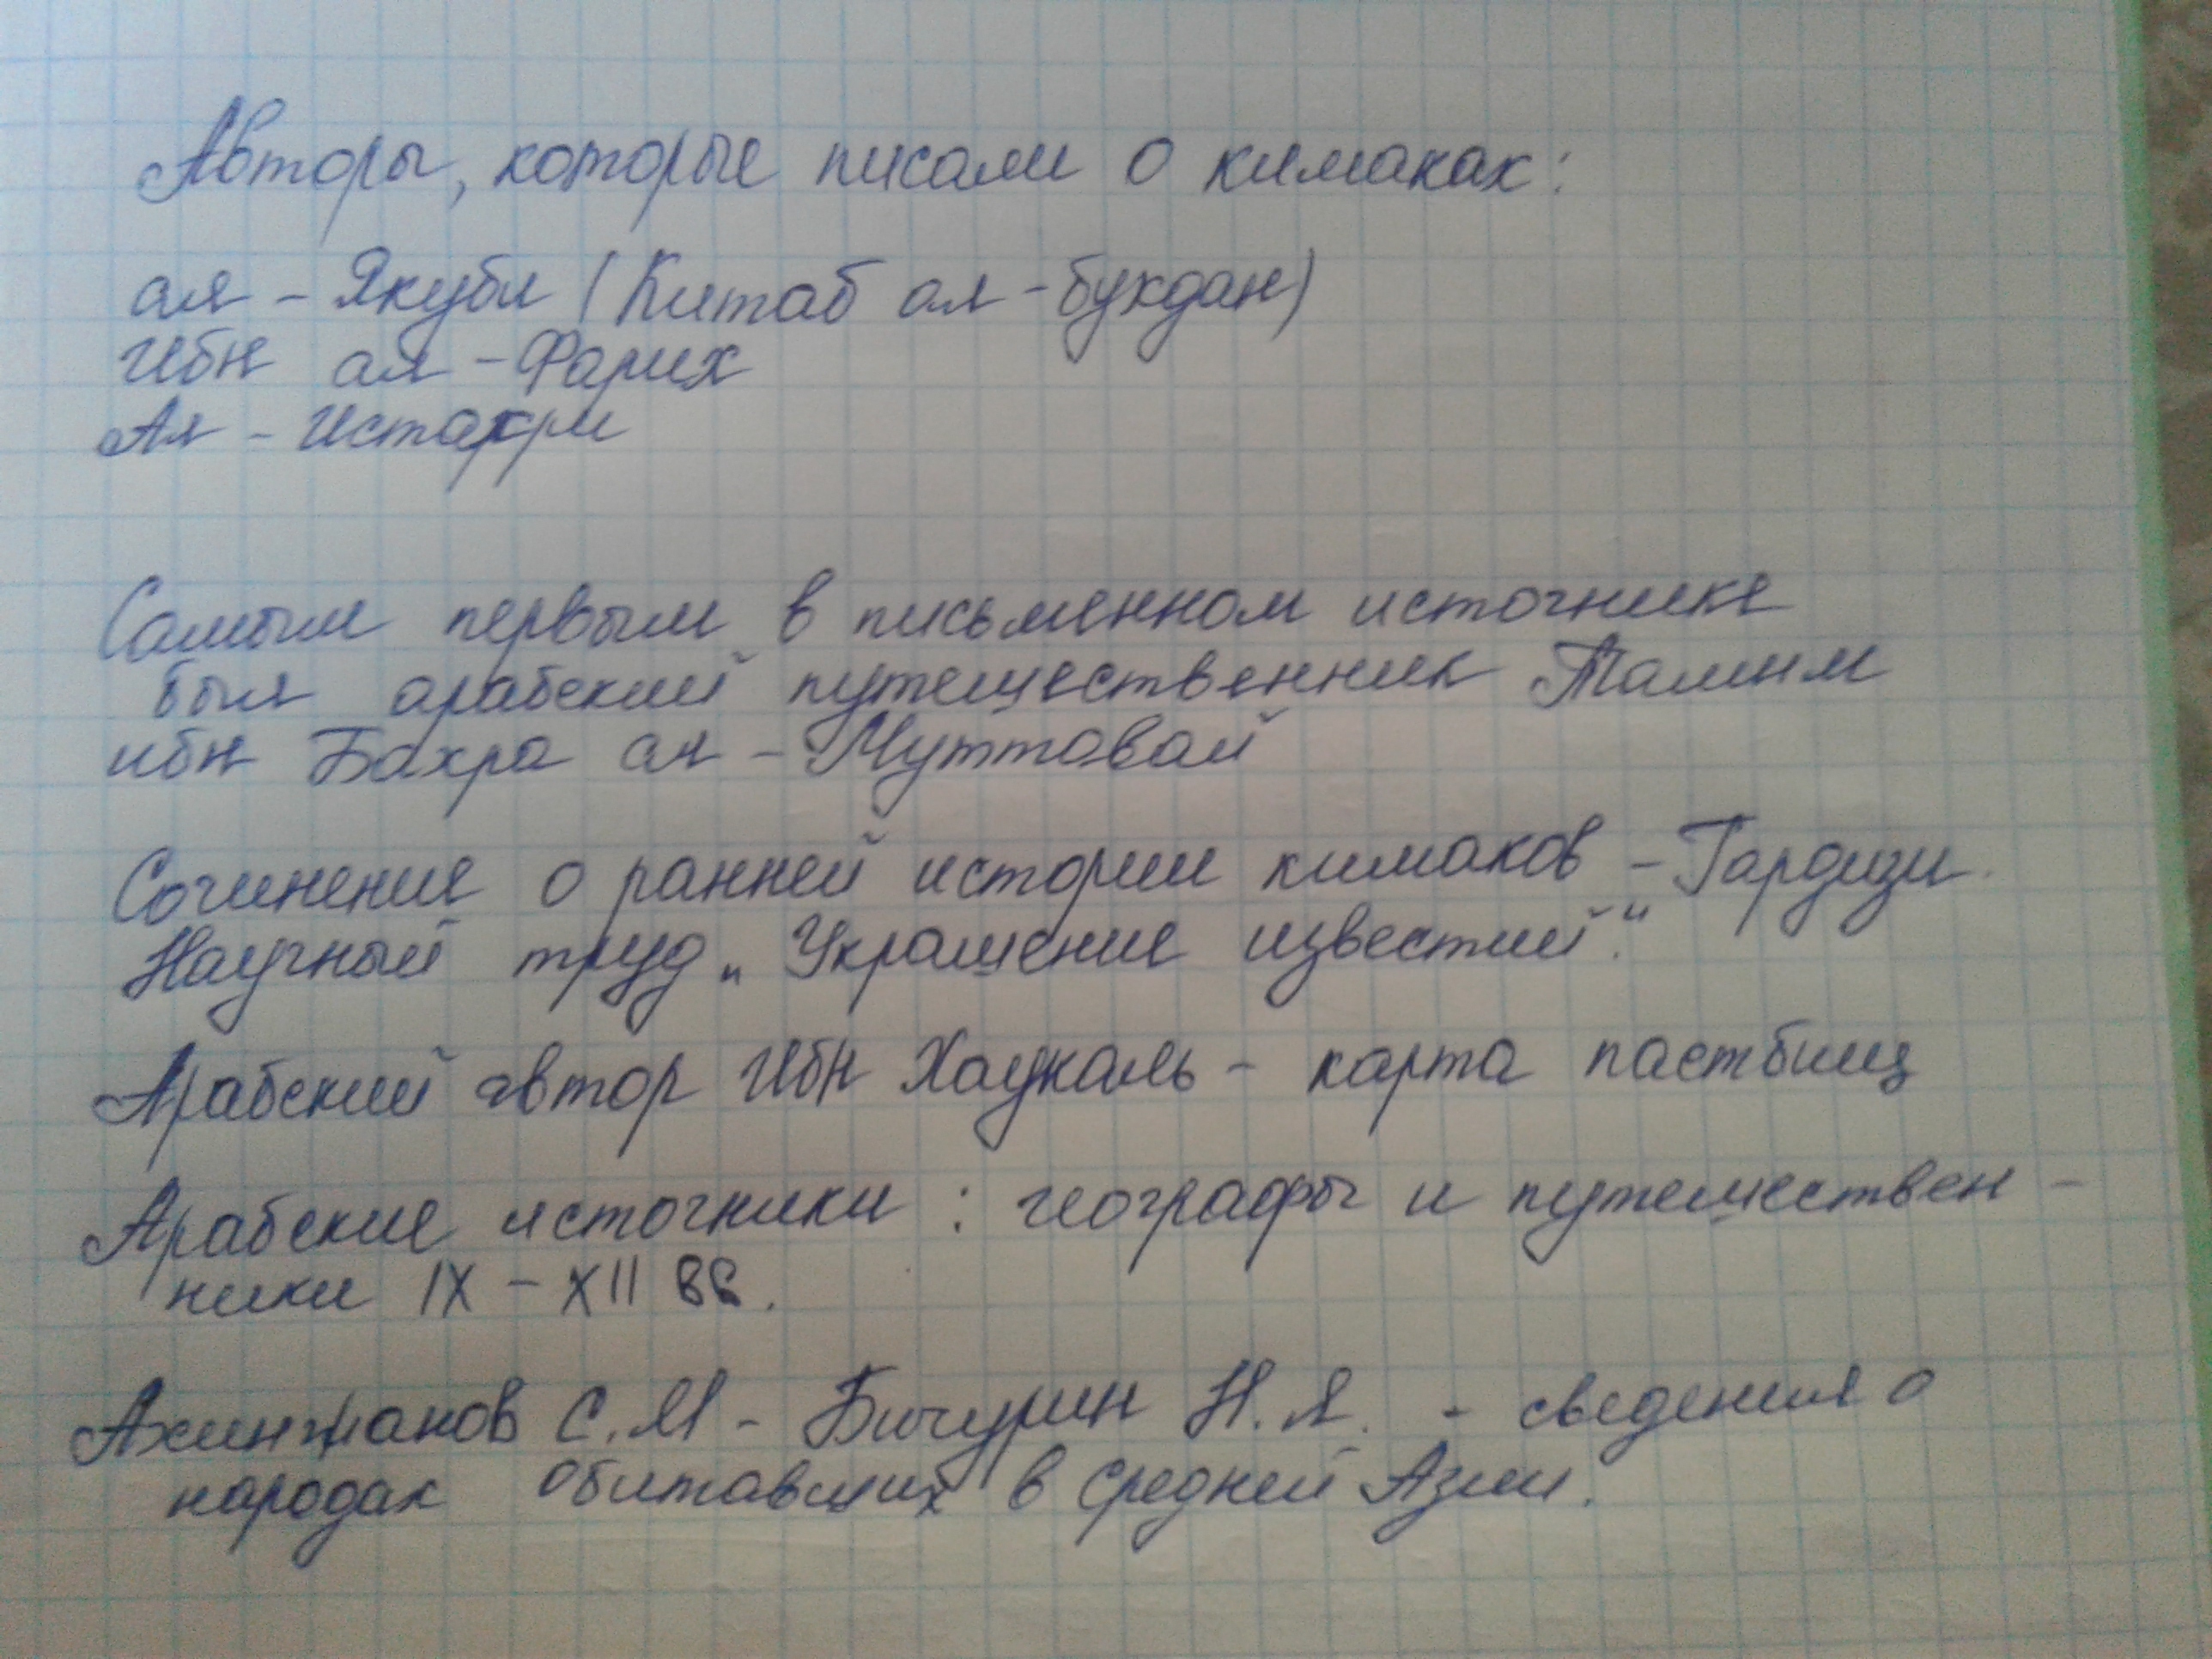 Авторы, которые писали о кимаках:
ал - Якуби (Китаб ал - булдан)
Ибн ал - Фарих
Ал - Истахри
Самым первым в письменном источнике
был арабский путешественник Тамим
ибн Бахра ал - Муттовай
Сочинение о ранней истории кимаков - Гардизи.
Научный труд „Украшение известий."
Арабский автор Ибн Хаукаль - карта пастбищ
Арабские источники : географы и путешествен -
ники IX - XII вв.
Ахинжанов С.М - Бичурин Н.Я. - сведения о
народах обитавших в Средней Азии.